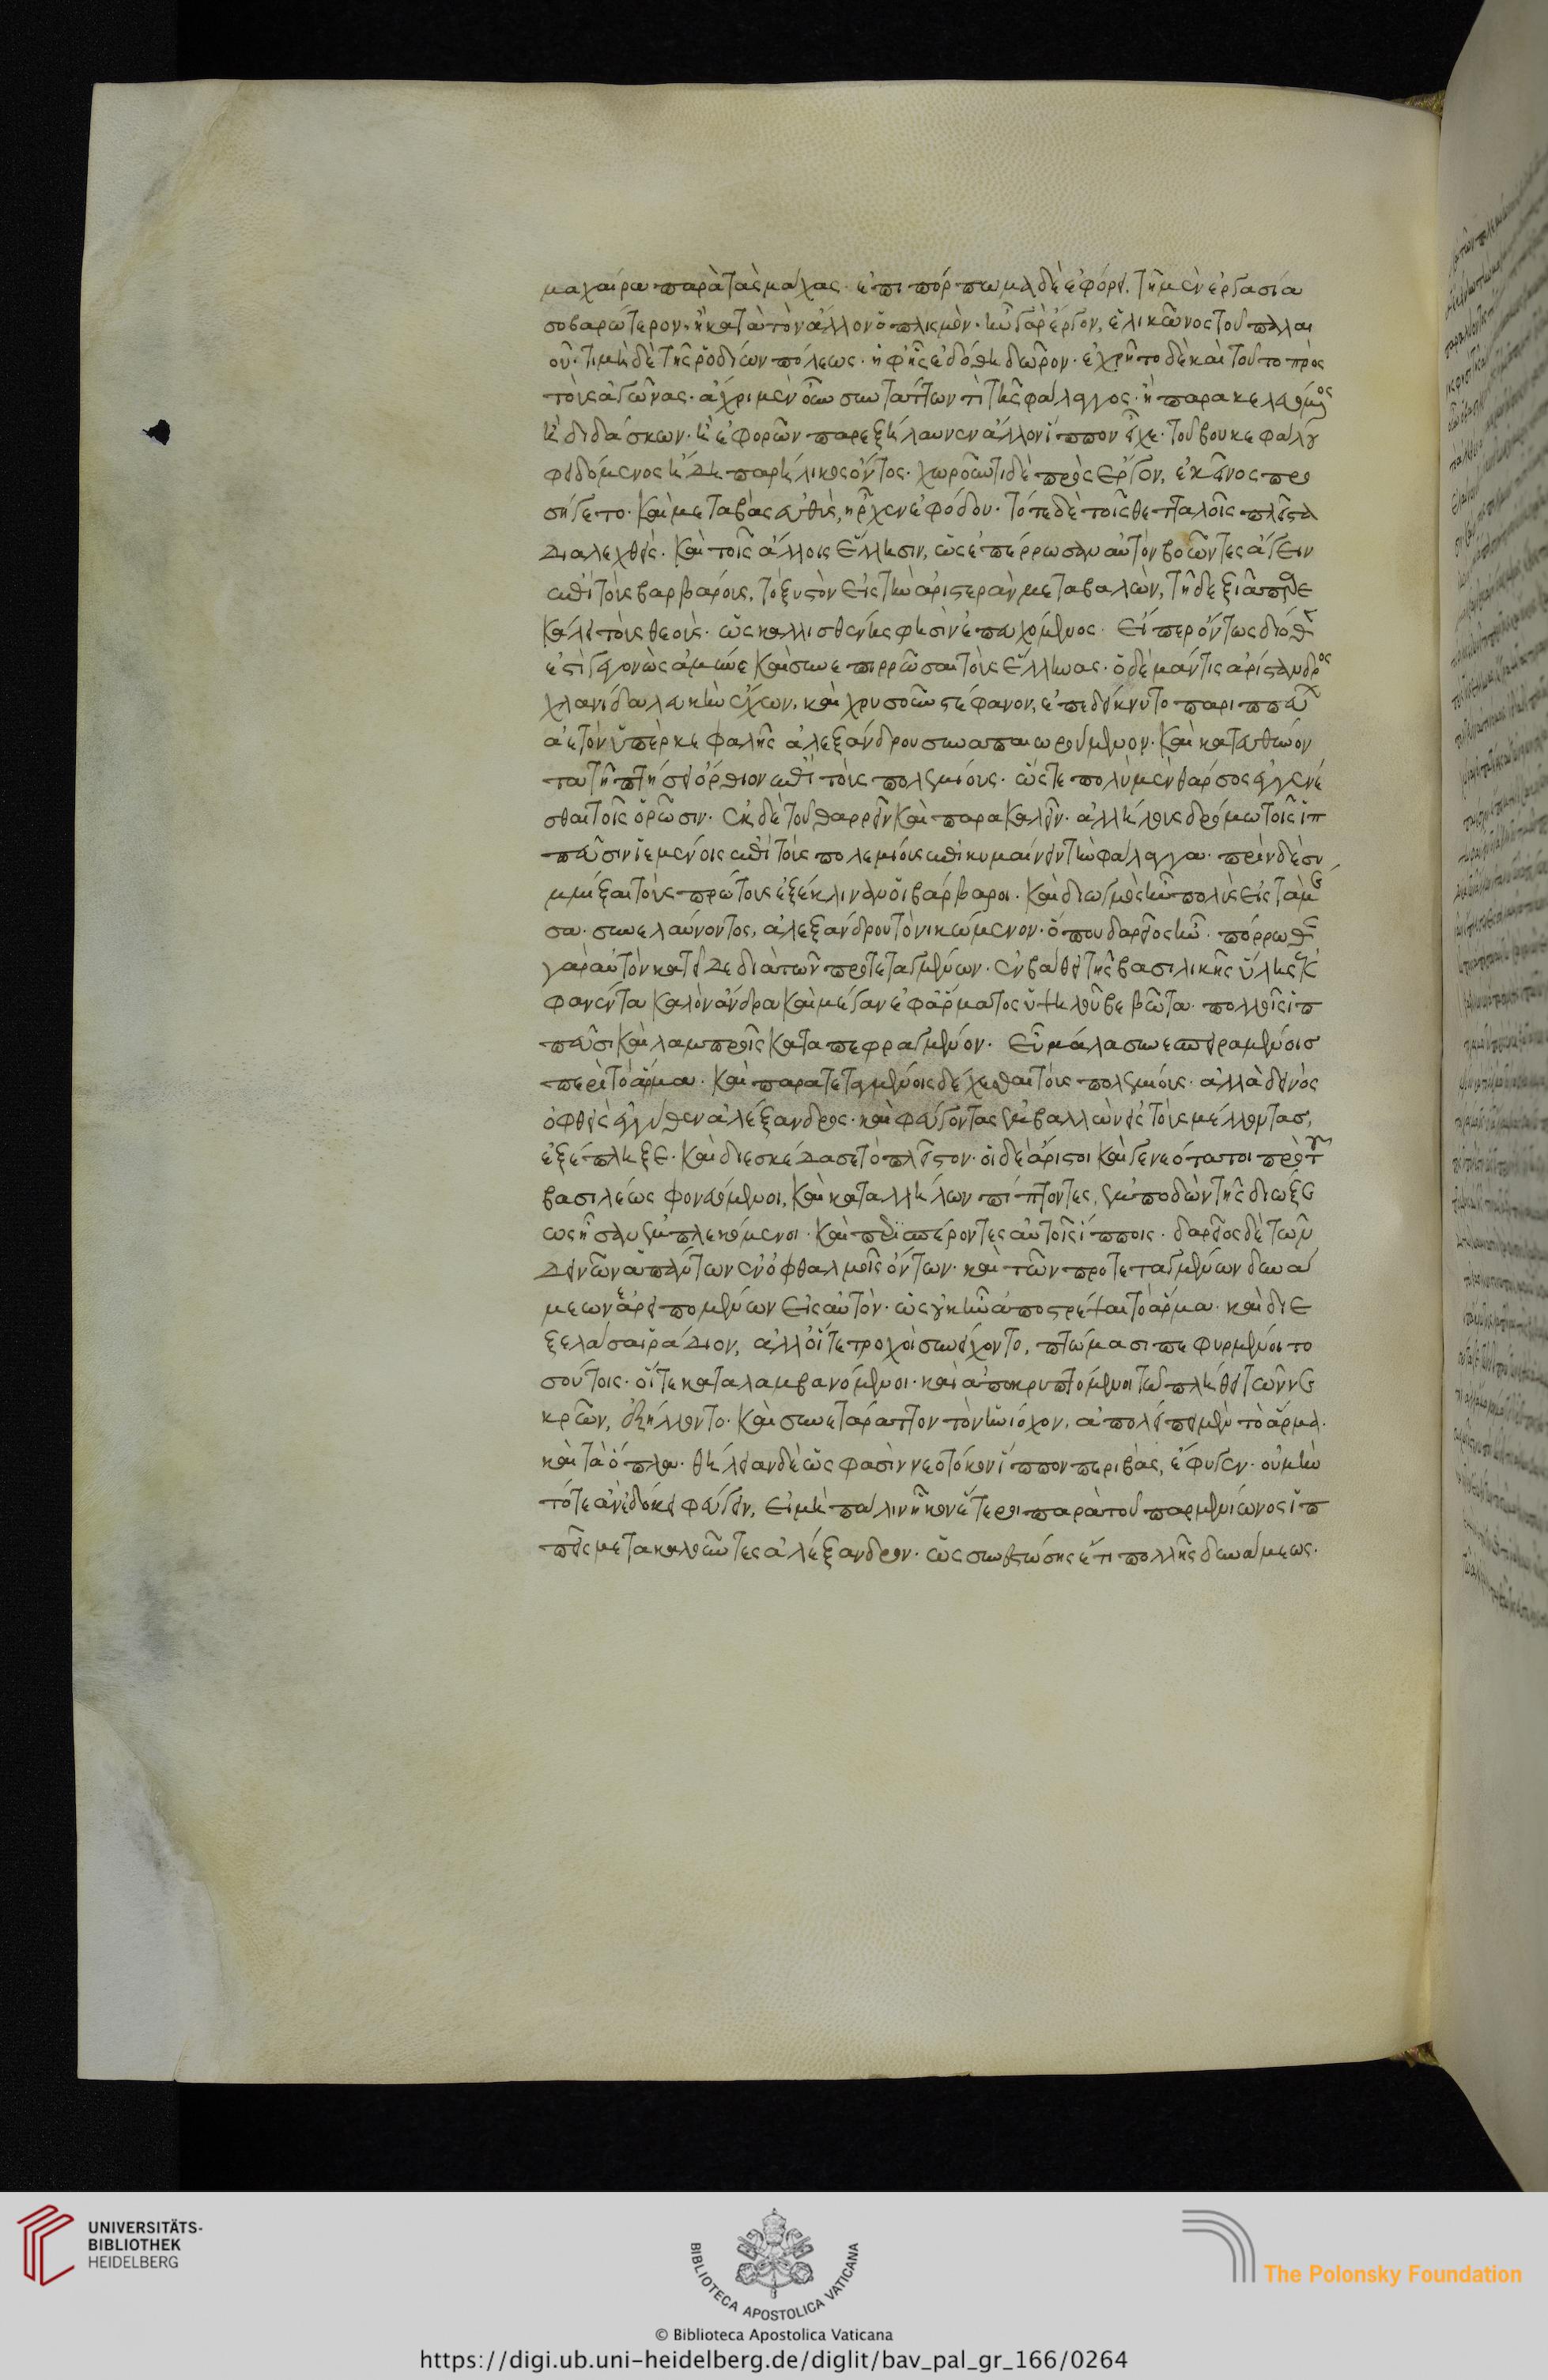 μαχαίρα παρὰ τὰς μάχας· ἐπι πόρπωμα δὲ ἐφόρει, τῆ μὲν ἐργασία
σοβαρώτερον, ἢ κατὰ τὸν ἄλλον ὁπλισμὸν· ἦν γὰρ ἔργον, ἑλικῶνος τοῦ παλαι
οῦ· τιμὴ δὲ τῆς ῥοδίων πόλεως· ὑφ' ἧς ἐδόθη δῶρον· ἐχρῆτο δὲ καὶ τούτο πρὸς
τοὺς ἀγῶνας· ἄχρι μὲν οὖν συντάττων τὶ τῆς φάλαγγος· ἢ παρακελευόμενος
ἢ διδάσκων· ἢ ἐφορῶν παρεξήλαυνεν ἄλλον ἵππον εἶχε· τοῦ βουκεφάλου
φειδόμενος ἤδη παρήλικος ὄντος· χωροῦντι δὲ πρὸς ἔργον, ἐκεῖνος προ
σήγετο· καὶ μεταβὰς εὐθὺς, ἦρχεν ἐφόδου· τότε δὲ τοῖς θετταλοῖς πλεῖστα
διαλεχθεὶς· καὶ τοῖς ἄλλοις ἕλλησιν, ὡς ἐπέρρωσαν αὐτὸν βοῶντες ἄγειν
ἐπὶ τοὺς βαρβάρους, τὸ ξυστὸν εἰς τὴν ἀριστερὰν μεταβαλὼν, τῆ δεξιᾶ παρε
κάλει τοὺς θεοὺς· ὡς καλλισθένης φησὶν ἐπευχόμενος· εἴπερ ὄντως διόθεν
ἐστὶ γεγονὼς ἀμῦναι καὶ συνεπιρρῶσαι τοὺς ἕλληνας· ὁ δὲ μάντις ἀρίστανδρος
χλανίδα λευκὴν ἔχων, καὶ χρυσοῦν στέφανον, ἐπεδείκνυτο παριππεύων
ἀετὸν ὑπὲρ κεφαλῆς ἀλεξάνδρου συνεπαιωρούμενον· καὶ κατευθύνον
τα τῆ πτήσει ὄρθιον ἐπὶ τοὺς πολεμίους· ὥστε πολὺ μὲν θάρσος ἐγγενέ
σθαι τοῖς ὁρῶσιν· ἐκ δὲ τοῦ θαρρεῖν καὶ παρακαλεῖν· ἀλλήλους δρόμω τοῖς ἱπ
πεῦσιν ἱεμένοις ἐπὶ τοὺς πολεμίους ἐπικυμαίνειν τὴν φάλαγγα· πρὶν δὲ συ
μμίξαι τοὺς πρώτους ἐξέκλιναν οἱ βάρβαροι· καὶ διωγμὸς ἦν πολὺς εἰς τὰ μέ
σα· συνελαύνοντος, ἀλεξάνδρου τὸ νικώμενον· ὅπου δαρεῖος ἦν· πόρρωθεν
γὰρ αὐτὸν κατεῖδε διὰ τῶν προτεταγμένων· ἐν βάθει τῆς βασιλικῆς ἴλης ἐκ
φανέντα καλὸν ἄνδρα καὶ μέγαν ἐφ' ἅρματος ὑψηλοῦ βεβῶτα· πολλοῖς ἱπ
πεῦσι καὶ λαμπροῖς καταπεφραγμένον· εὖ μάλα συνεσπειραμένοις
περὶ τὸ ἅρμα· καὶ παρατεταγμένοις δέχεσθαι τοὺς πολεμίους· ἀλλὰ δεινὸς
ὀφθεὶς ἐγγύθεν ἀλέξανδρος· καὶ φεύγοντας ἐμβαλλὼν εἰς τοὺς μένοντας,
ἐξέπληξε· καὶ διεσκέδασε τὸ πλεῖστον· οἱ δὲ ἄριστοι καὶ γενεότατοι πρὸ τοῦ
βασιλέως φονευόμενοι, καὶ κατ' ἀλλήλων πίπτοντες, ἐμποδὼν τῆς διώξε
ως ἦσαν ἐμπλεκόμενοι· καὶ περισπέροντες αὐτοῖς ἵπποις· δαρεῖος δὲ τῶν
δεινῶν ἁπάντων ἐν ὀφθαλμοῖς ὄντων· καὶ τῶν προτεταγμένων δυνά
μεων ἐρειπομένων εἰς αὐτὸν· ὡς οὐκ ἦν ἀποστρέψαι τὸ ἅρμα· καὶ διε
ξελάσαι ῥάδιον, ἀλλ' οἵ τε τροχοὶ συνείχοντο, πτώμασι πεφυρμένοι το
σούτοις· οἵ τε καταλαμβανόμενοι· καὶ ἀποκρυπτόμενοι τῶ πλήθει τῶν νε
κρῶν, ἐξήλλοντο· καὶ συνετάραττον τὸν ἡνίοχον, ἀπολείπει μὲν τὸ ἅρμα·
καὶ τὰ ὅπλα· θήλειαν δὲ ὥς φασὶν νεοτόκον ἵππον περιβὰς, ἔφυγεν· οὐ μὴν
τότε ἂν ἐδόκει φυγεῖν, εἰ μὴ πάλιν ἧκον ἕτεροι παρὰ τοῦ παρμενίωνος ἱπ
πεῖς μετακαλοῦντες ἀλέξανδρον· ὡς συνεστώσης ἔτι πολλῆς δυνάμεως·
UNIVERSITÄTS-
BIBLIOTHEK
HEIDELBERG
BIBLIOTECA APOSTOLICA VATICANA
The Polonsky Foundation
© Biblioteca Apostolica Vaticana
https://digi.ub.uni-heidelberg.de/diglit/bav_pal_gr_166/0264